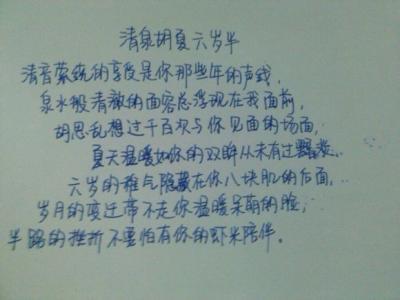 清泉胡夏六岁半
清音萦绕的享受是你那些年的声线,
泉水般清澈的面容总浮现在我面前,
胡思乱想过千百次与你见面的场面,
夏天温暖如你的双眸从未有过
六岁的稚气隐藏在你八块肌的后面,
岁月的变迁带不走你温暖呆萌的脸,
半路的挫折不要怕有你的虾米陪伴。